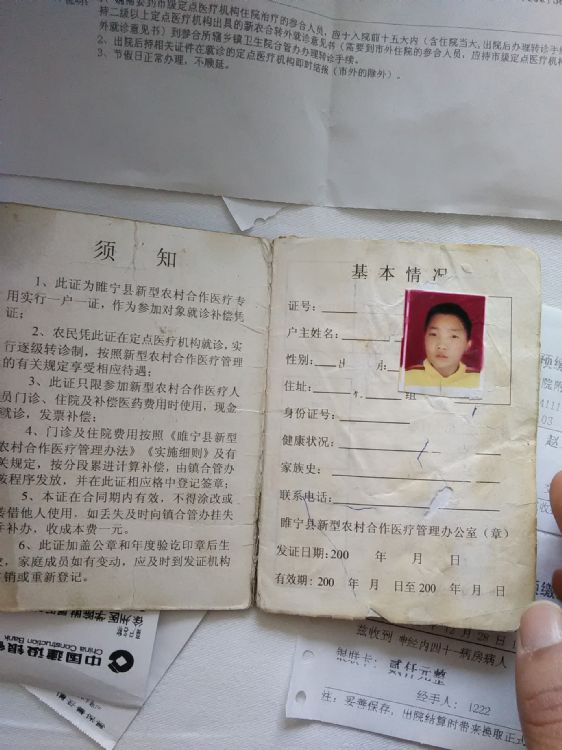 需要到市级定点医疗机构住院治疗的参合人员，应于入院前十五天内（含住院当天，出院后办理转诊手续
持二级以上定点医疗机构出具的新农合转外就诊意见书（需要到市外住院的参合人员，应持市级定点医疗机构
外就诊意见书）到参合所辖乡镇卫生院合管办办理转诊手续。
2、出院后持相关证件在就诊的定点医疗机构即时结报（市外的除外）。
3、节假日正常办理，不顺延。
须 知
1、此证为睢宁县新型农村合作医疗专
用实行一户一证，作为参加对象就诊补偿凭
证；
2、农民凭此证在定点医疗机构就诊，实
行逐级转诊制，按照新型农村合作医疗管理
的有关规定享受相应待遇；
3、此证只限参加新型农村合作医疗人
员门诊、住院及补偿医药费用时使用，现金
就诊，发票补偿；
4、门诊及住院费用按照《睢宁县新型
农村合作医疗管理办法》《实施细则》及有
关规定，按分段累进计算补偿，由镇合管办
按程序发放，并在此证相应格中登记签章；
5、本证在合同期内有效，不得涂改或
转借他人使用，如丢失及时向镇合管办挂失
并补办，收成本费一元。
6、此证加盖公章和年度验讫印章后生
效，家庭成员如有变动，应及时到发证机构
注销或重新登记。
基 本 情 况
证号：
户主姓名：
性别：
住址： 组
身份证号：
健康状况：
家族史：
联系电话：
睢宁县新型农村合作医疗管理办公室（章）
发证日期：200 年 月 日
有效期：200 年 月 日至 200 年 月 日
4111
03
赵
中国建设银
China Construction Bank
徐州医学院附属
12 月 28 日
兹收到 神经内四十一病房病人
银联卡： 贰仟元整
经手人： 1222
注：妥善保存，出院结算时带来换取正式